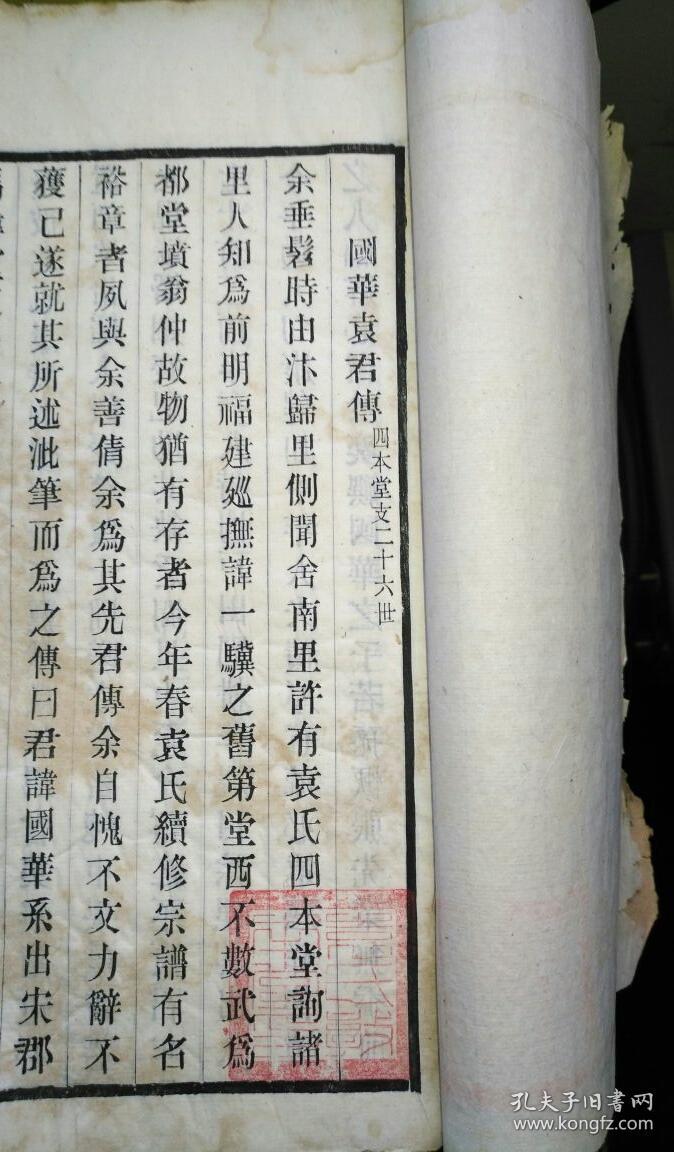 國華袁君傳 四本堂支二十六世
余垂髫時由汴歸里側聞舍南里許有袁氏四本堂詢諸
里人知爲前明福建廵撫諱一驥之舊第堂西不數武爲
都堂墳翁仲故物猶有存者今年春袁氏續修宗譜有名
裕章者夙與余善倩余爲其先君傳余自愧不文力辭不
獲已遂就其所述泚筆而爲之傳曰君諱國華系出宋郡
孔夫子旧书网
www.kongfz.com